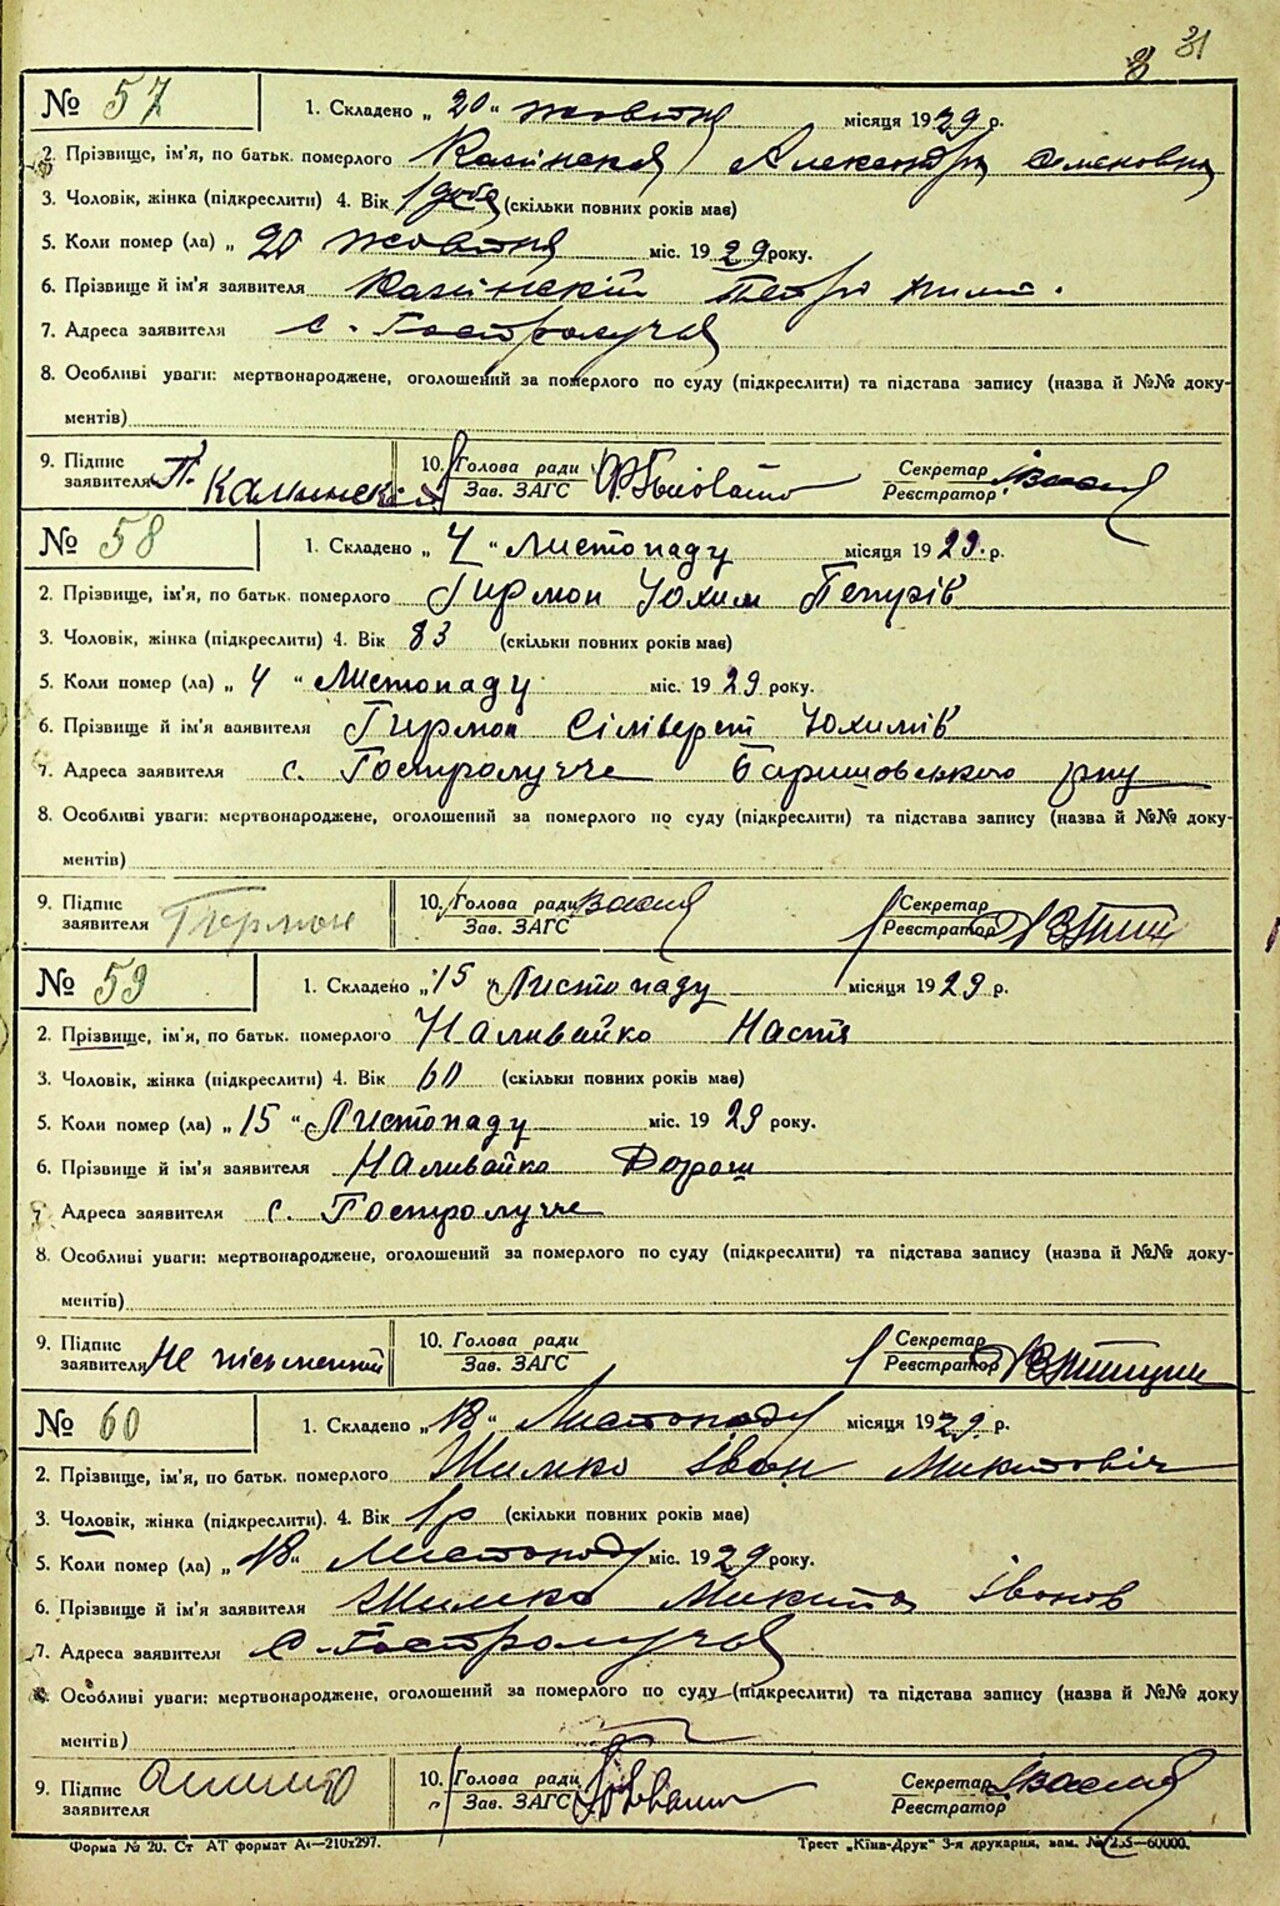 31
№ 57 1. Складено „ 20 “ жовтня місяця 1929 р.
2. Прізвище, ім'я, по батьк. померлого Александра Семеновна
3. Чоловік, жінка (підкреслити) 4. Вік 1 доба (скільки повних років має)
5. Коли помер (ла) „ 20 жовтня міс. 1929 року.
6. Прізвище й ім'я заявителя Петро
7. Адреса заявителя с. Гостролуччя
8. Особливі уваги: мертвонароджене, оголошений за померлого по суду (підкреслити) та підстава запису (назва й №№ доку-
ментів)
9. Підпис заявителя П. 10. Голова ради Зав. ЗАГС Секретар Реєстратор
№ 58 1. Складено „ 4 “ Листопаду місяця 1929 р.
2. Прізвище, ім'я, по батьк. померлого Гирман Юхим Петрів
3. Чоловік, жінка (підкреслити) 4. Вік 83 (скільки повних років має)
5. Коли помер (ла) „ 4 “ Листопаду міс. 1929 року.
6. Прізвище й ім'я заявителя Гирман Сіліверст Юхимів
7. Адреса заявителя с. Гостролучче Баришовського рну
8. Особливі уваги: мертвонароджене, оголошений за померлого по суду (підкреслити) та підстава запису (назва й №№ доку-
ментів)
9. Підпис заявителя Гирман 10. Голова ради Зав. ЗАГС Секретар Реєстратор
№ 59 1. Складено „ 15 “ Листопаду місяця 1929 р.
2. Прізвище, ім'я, по батьк. померлого Наливайко Настя
3. Чоловік, жінка (підкреслити) 4. Вік 60 (скільки повних років має)
5. Коли помер (ла) „ 15 “ Листопаду міс. 1929 року.
6. Прізвище й ім'я заявителя Наливайко Дорош
7. Адреса заявителя с. Гостролучче
8. Особливі уваги: мертвонароджене, оголошений за померлого по суду (підкреслити) та підстава запису (назва й №№ доку-
ментів)
9. Підпис заявителя Не письменний 10. Голова ради Зав. ЗАГС Секретар Реєстратор
№ 60 1. Складено „ 18 “ Листопаду місяця 1929 р.
2. Прізвище, ім'я, по батьк. померлого Шимко Іван Микитовіч
3. Чоловік, жінка (підкреслити). 4. Вік 1 р (скільки повних років має)
5. Коли помер (ла) „ 18 “ Листопаду міс. 1929 року.
6. Прізвище й ім'я заявителя Шимко Микита Іванов
7. Адреса заявителя с. Гостролуччя
8. Особливі уваги: мертвонароджене, оголошений за померлого по суду (підкреслити) та підстава запису (назва й №№ доку
ментів)
9. Підпис заявителя 10. Голова ради Зав. ЗАГС Секретар Реєстратор
Форма № 20. Ст АТ формат А4—210х297. Трест „Київ-Друк“ 3-я друкарня, зам. № 235—60000.